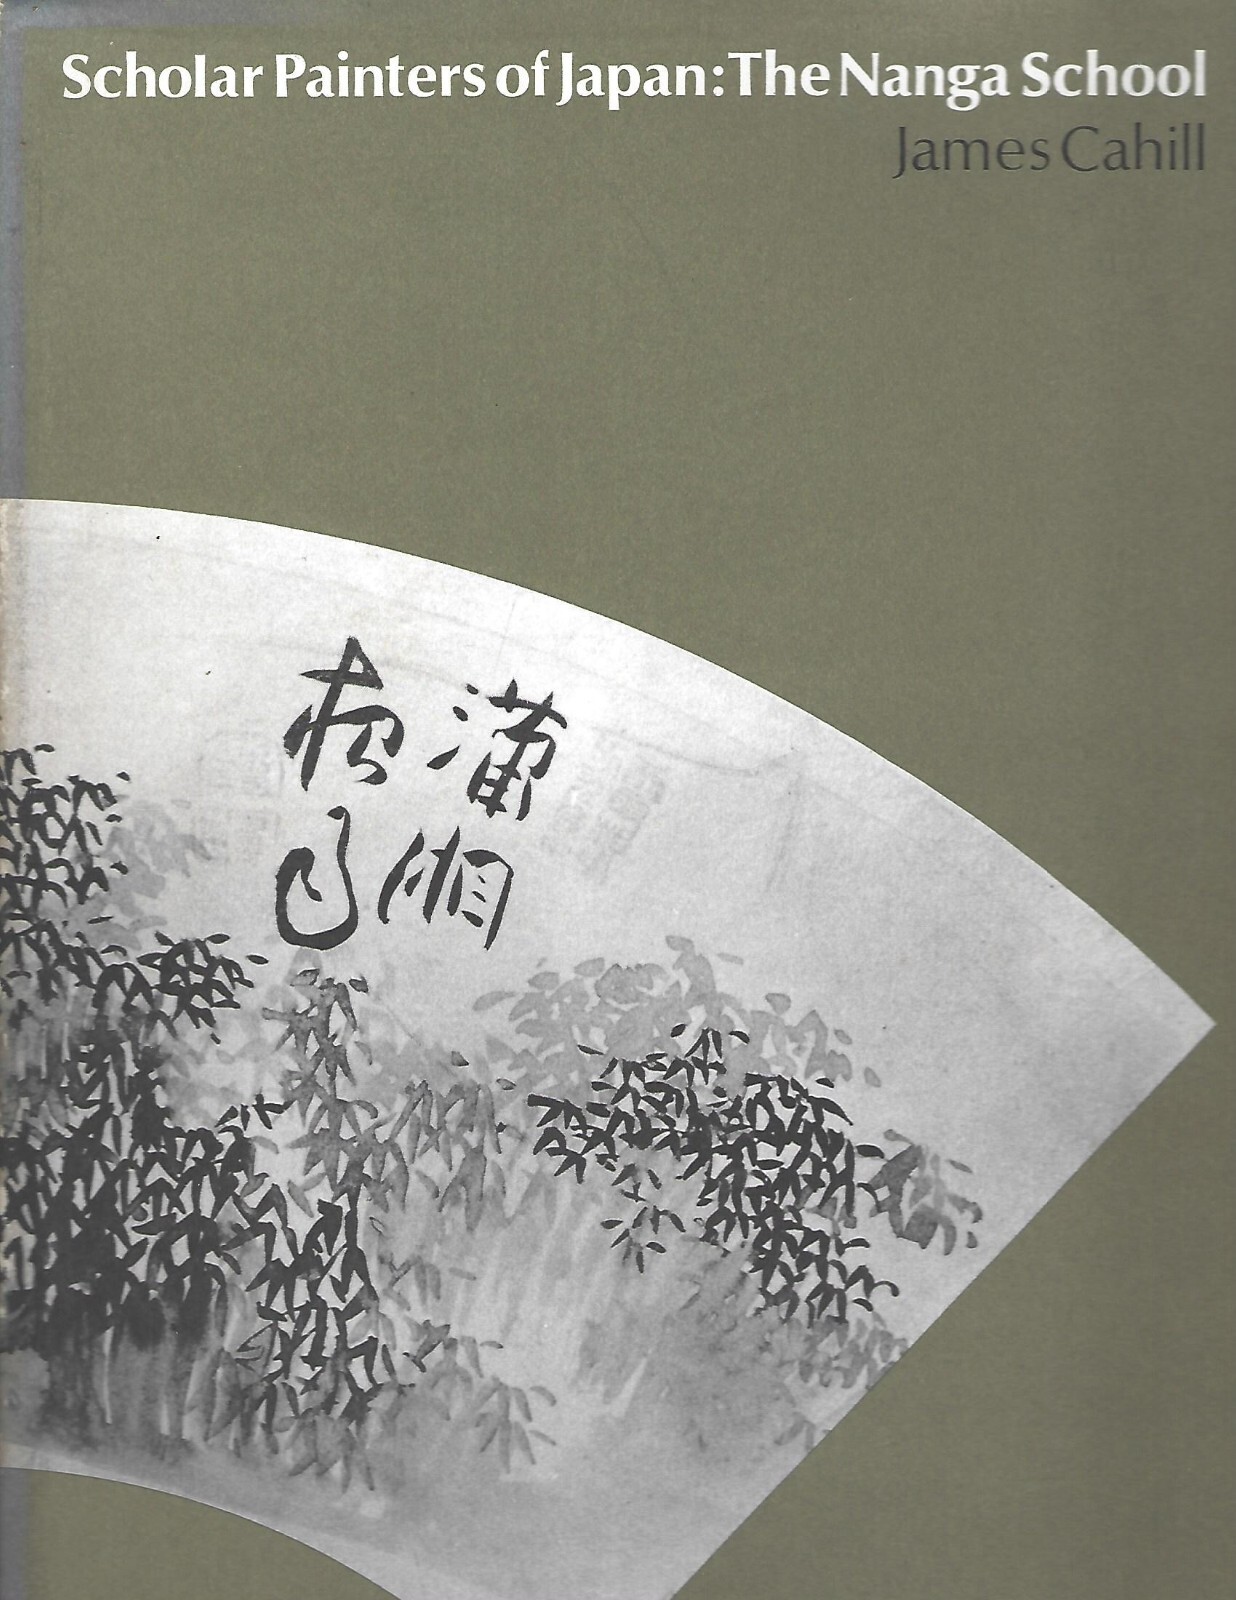 Scholar Painters of Japan: The Nanga School
James Cahill
瀟湘